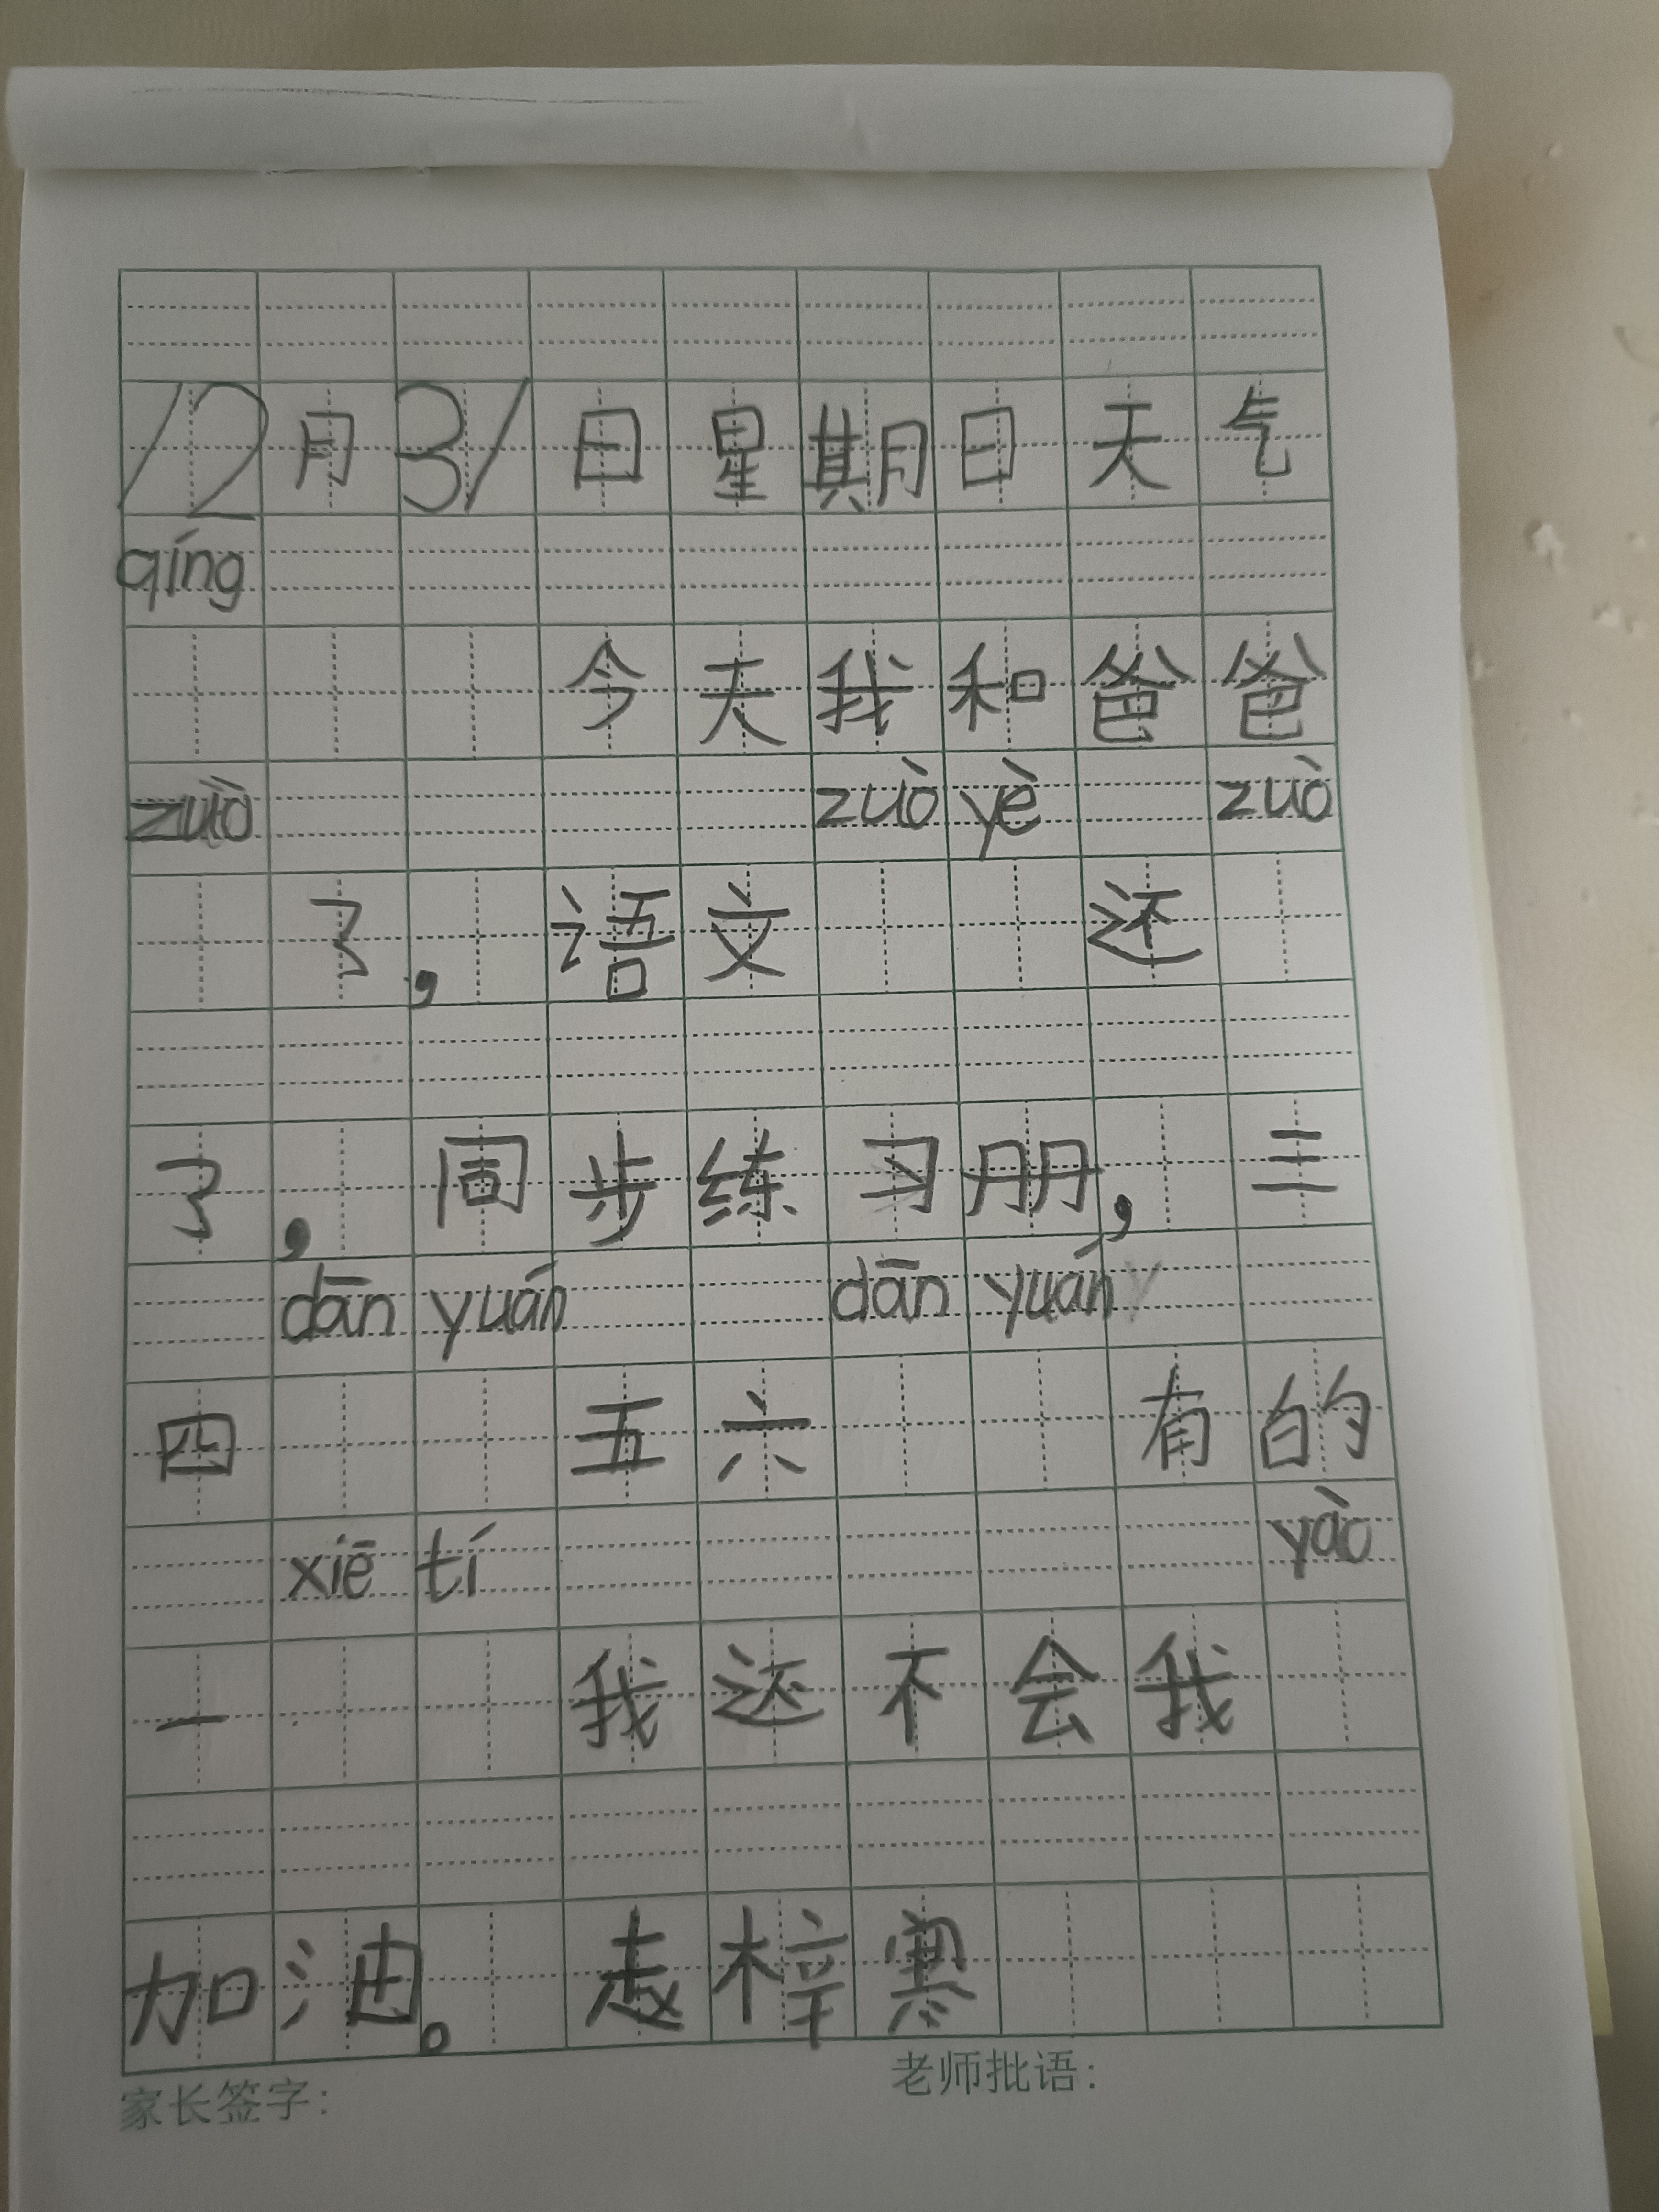 12月31日星期日天气
qíng
今天我和爸爸
zuò zuò yè zuò
了，语文 还
了，同步练习册，三
dān yuán dān yuán
四 五六 有的
xiē tí yào
一 我还不会我
加油。 赵梓寒
家长签字： 老师批语：